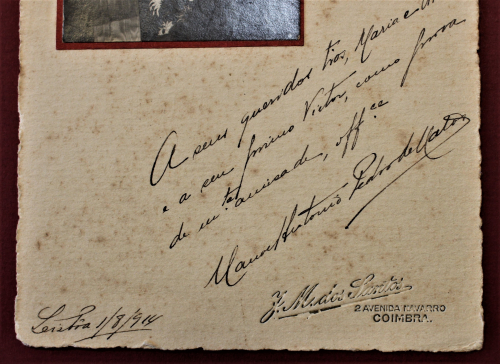 A seus queridos tios, Maria e
e a seu primo Victor, como prova
de m.ta amisade, off.ce
Manoel Antonio Pedro de Mattos
Leiria 1/8/914
J. M. Santos
2 AVENIDA NAVARRO
COIMBRA.